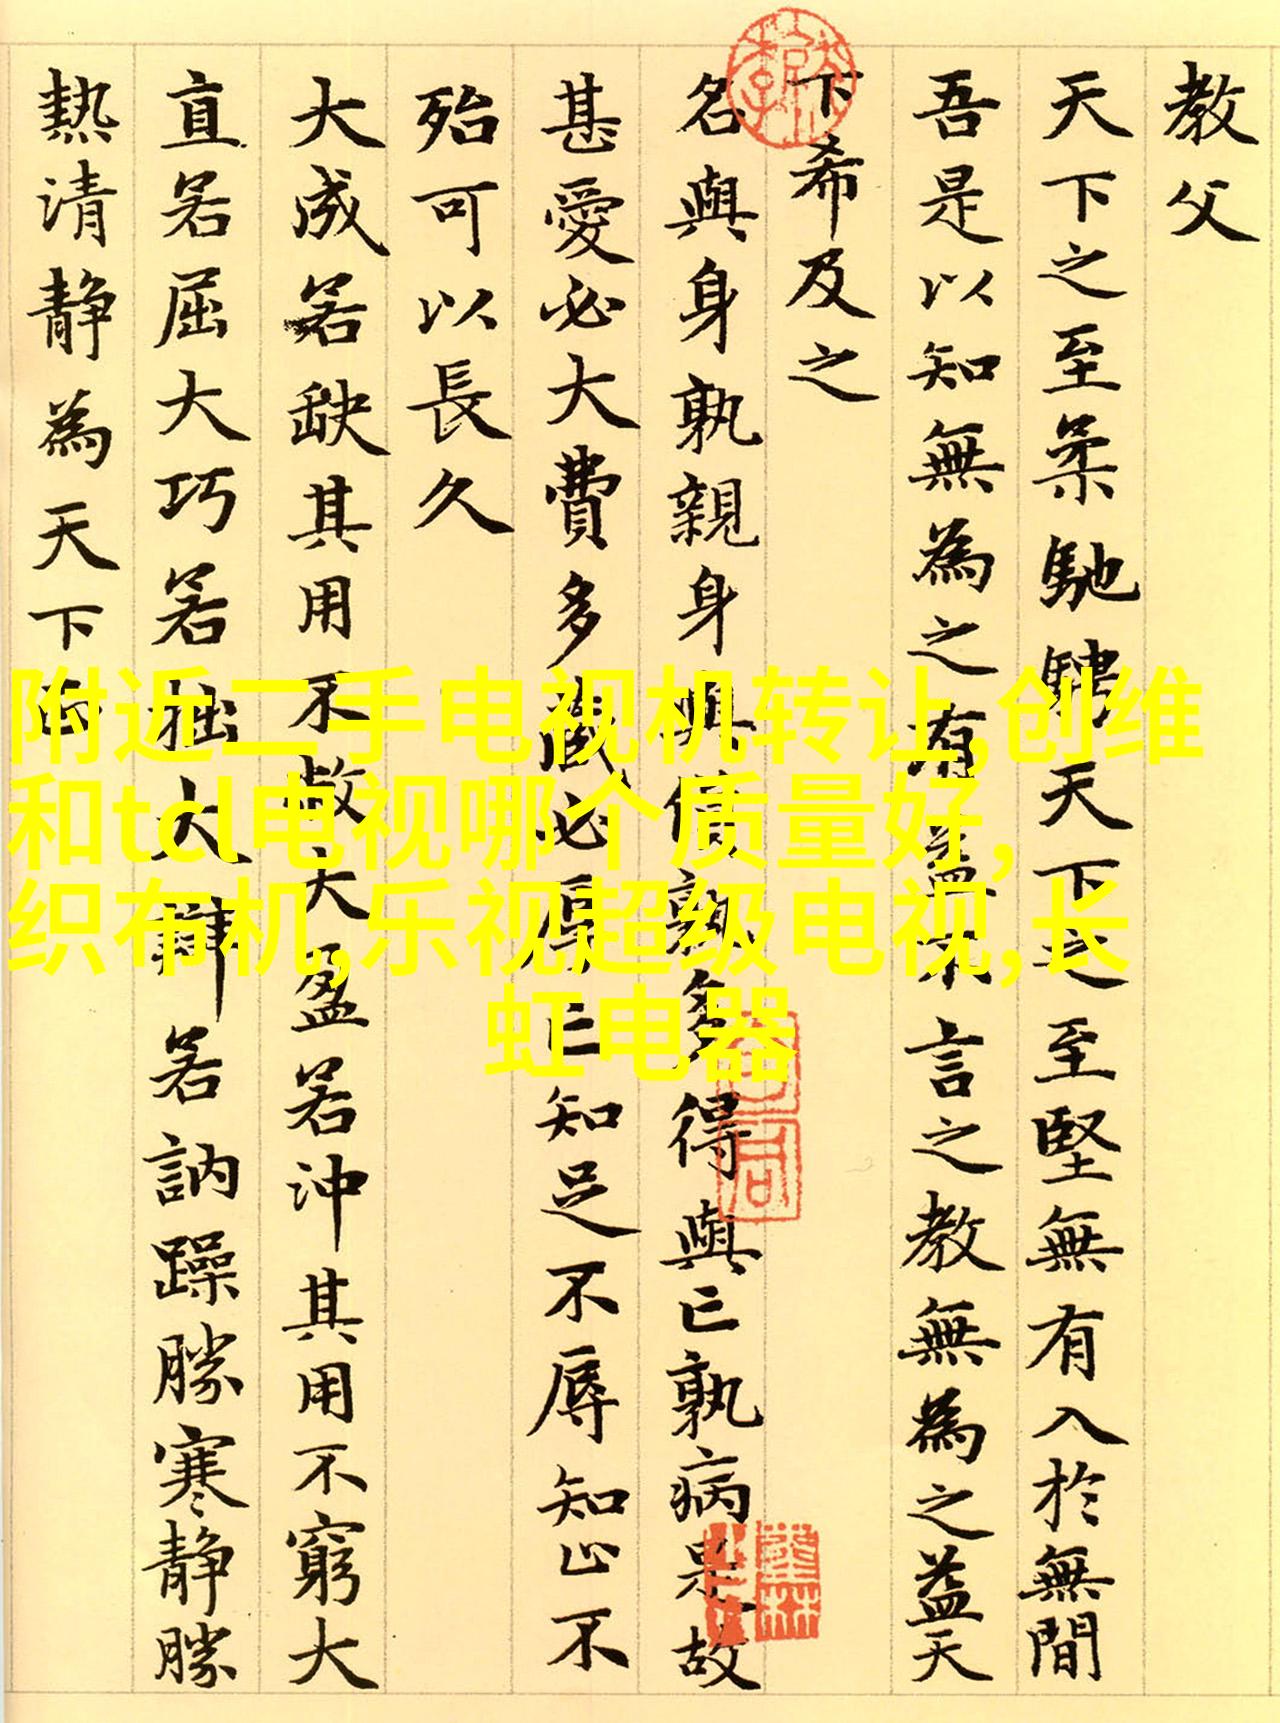 教父
天下之至柔馳騁天下之至堅無有入於無間
吾是以知無為之有益不言之教無為之益天
下希及之
名與身孰親身與貨孰多得與亡孰病是故
甚愛必大費多藏必厚亡知足不辱知止不
殆可以長久
大成若缺其用不敝大盈若沖其用不窮大
直若屈大巧若拙大辯若訥躁勝寒静勝
熱清静為天下正
附近二手电视机转让,创维
和tcl电视哪个质量好,
织布机,乐视超级电视,长
虹电器